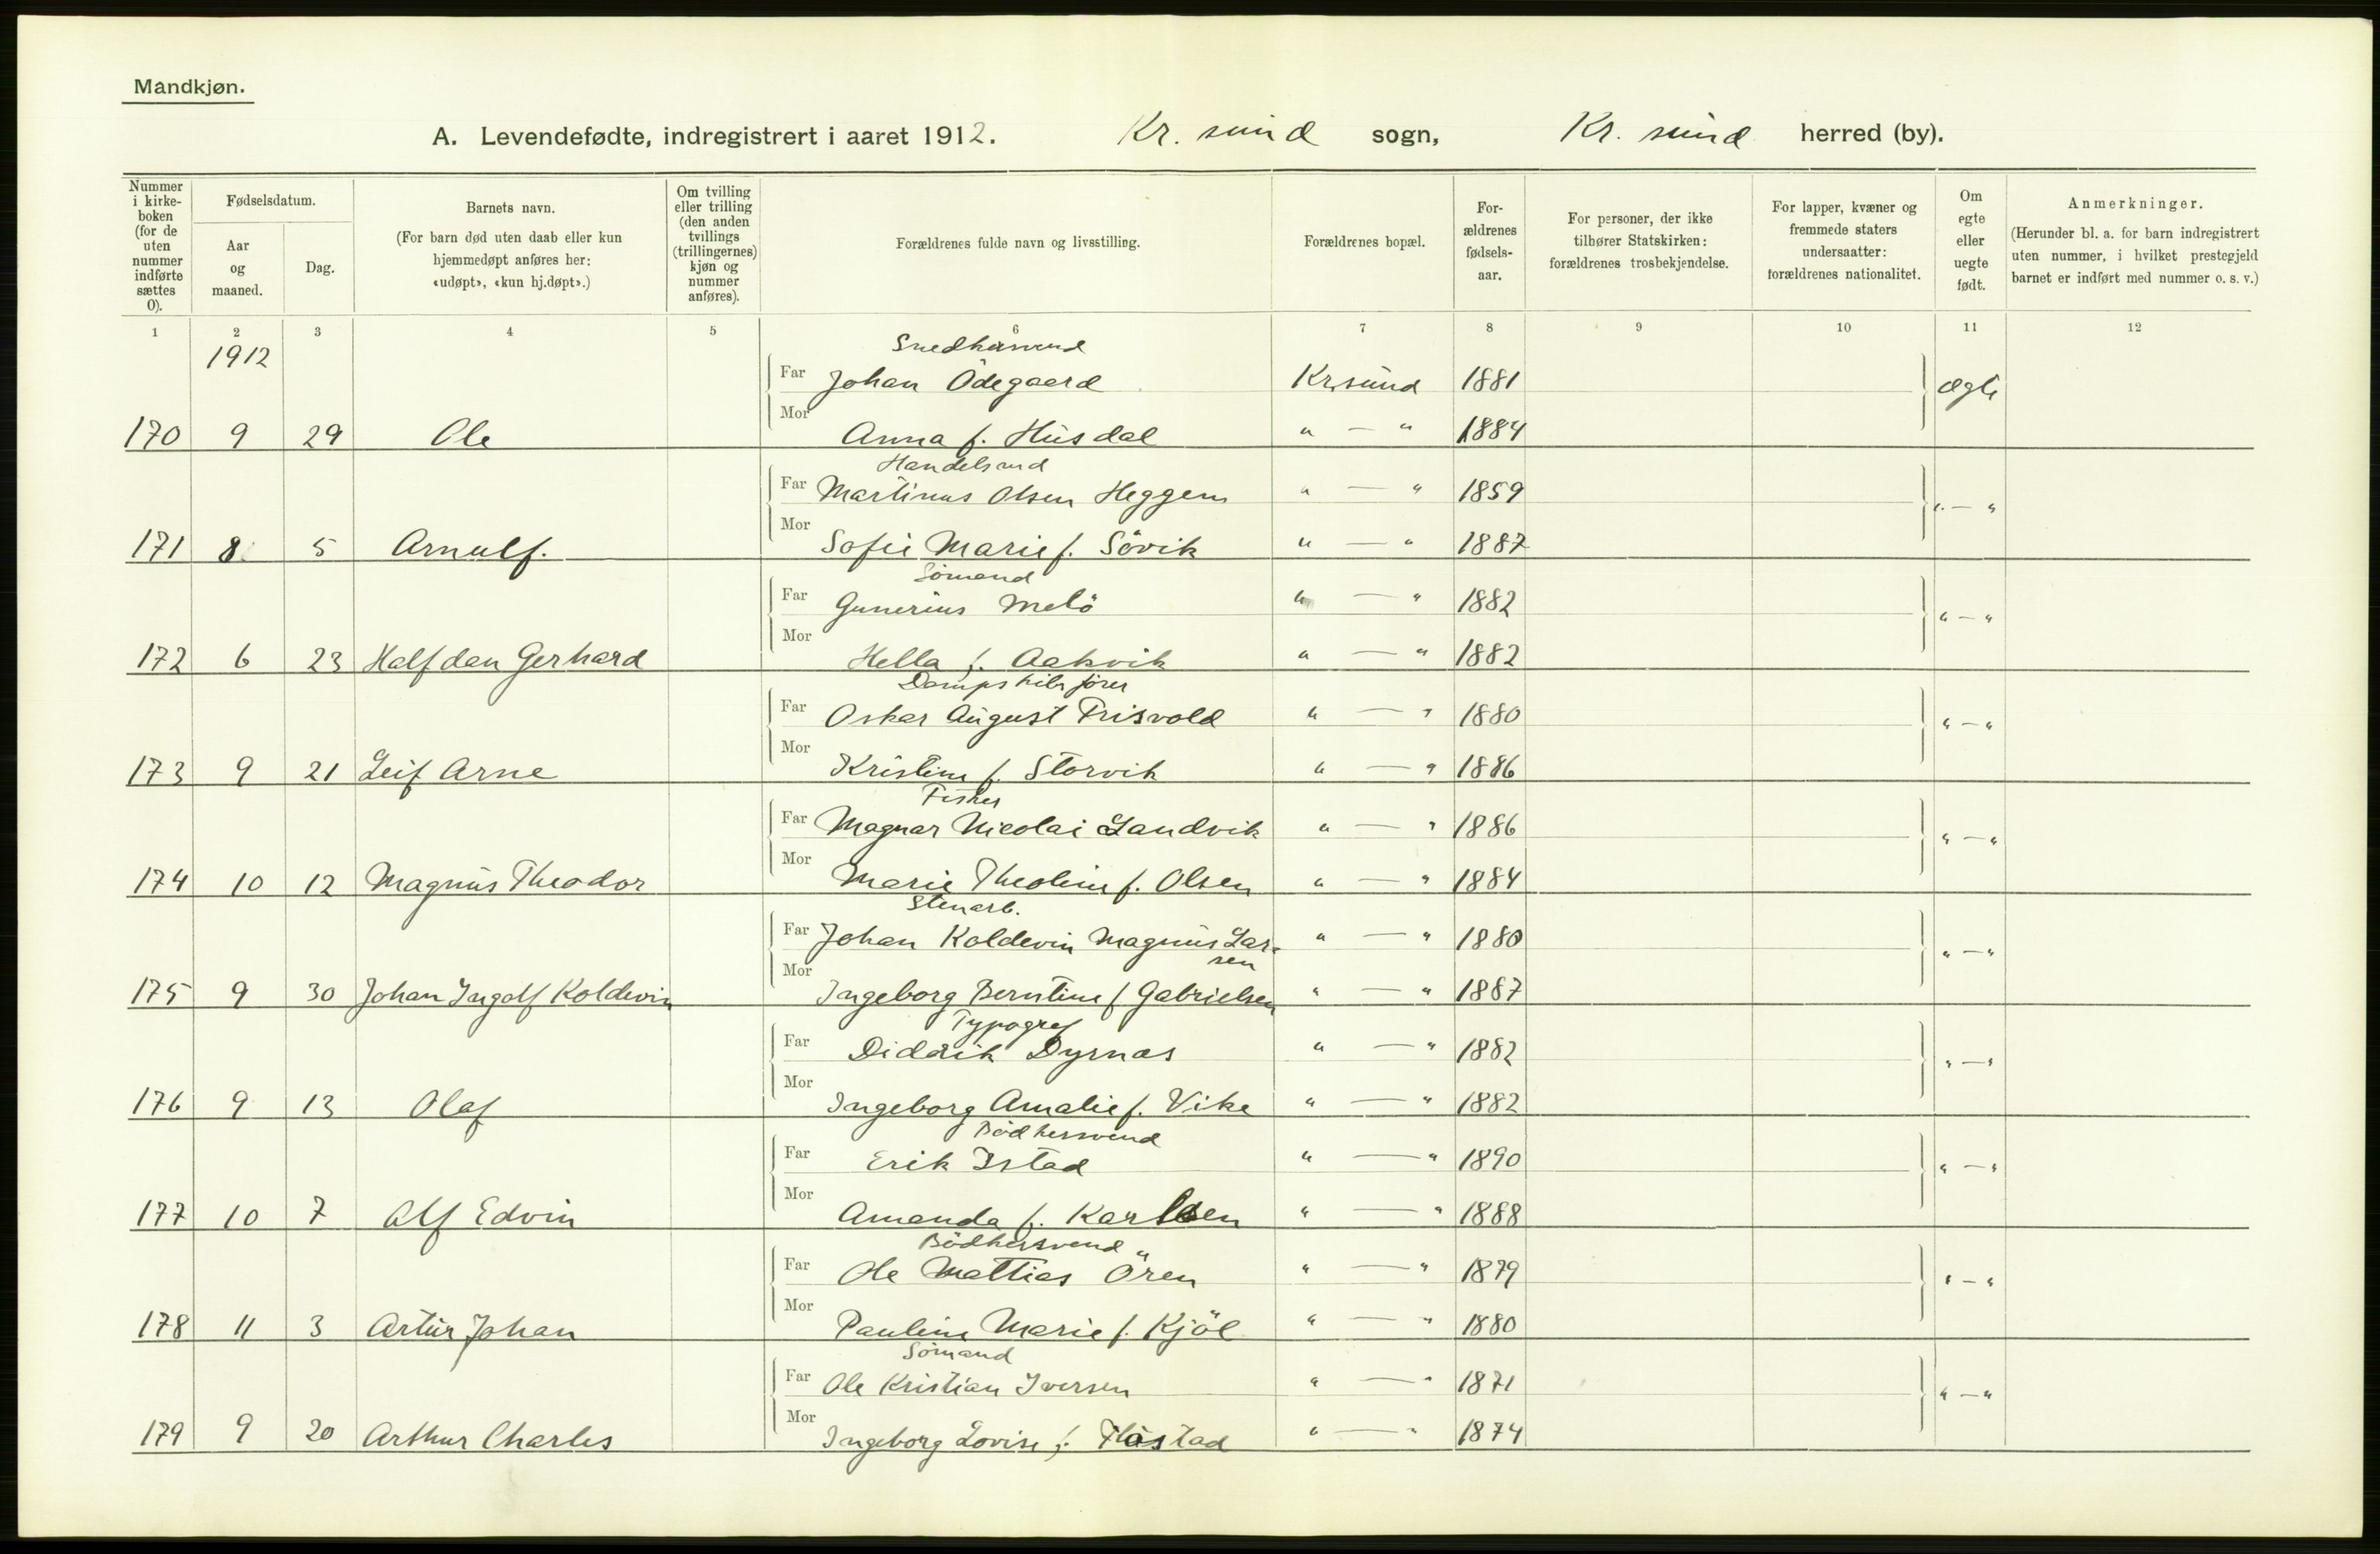 Mandkjøn.
A. Levendefødte, indregistrert i aaret 1912. Kr. sund sogn, Kr. sund herred (by).
Nummer i kirke-boken (for de uten nummer indførte sættes 0).
Fødselsdatum.
Aar og maaned.
Dag.
Barnets navn.
(For barn død uten daab eller kun hjemmedøpt anføres her: «udøpt», «kun hj.døpt».)
Om tvilling eller trilling (den anden tvillings (trillingernes) kjøn og nummer anføres).
Forældrenes fulde navn og livsstilling.
Forældrenes bopæl.
For-ældrenes fødsels-aar.
For personer, der ikke tilhører Statskirken: forældrenes trosbekjendelse.
For lapper, kvæner og fremmede staters undersaatter: forældrenes nationalitet.
Om egte eller uegte født.
Anmerkninger.
(Herunder bl. a. for barn indregistrert uten nummer, i hvilket prestegjeld barnet er indført med nummer o. s. v.)
1 2 3 4 5 6 7 8 9 10 11 12
1912
Snedkersvend
Far Johan Ödegaard Kr.sund 1881 Ægte
Mor
170 9 29 Ole Anna f. Husdal " — " 1884
Handelsmd
Far Martinus Olsen Heggem " — " 1859 " — "
Mor
171 8 5 Arnulf. Sofie Marie f. Sövik " — " 1887
Sömand
Far Gunerius Melö " — " 1882 " — "
Mor
172 6 23 Halfdan Gerhard Hella f. Aakvik " — " 1882
Dampskibsförer
Far Oskar August Frisvold " — " 1880 " — "
Mor
173 9 21 Leif Arne Kristine f. Storvik " — " 1886
Fisker
Far Magnar Nicolai Sandvik " — " 1886 " — "
Mor
174 10 12 Magnus Theodor Marie Theoline f. Olsen " — " 1884
Stenarb.
Far Johan Koldevin Magnus Lar- " — " 1880 " — "
sen
Mor
175 9 30 Johan Ingolf Koldevin Ingeborg Berntine f Gabrielsen " — " 1887
Typograf
Far Didrik Dyrnas " — " 1882 " — "
Mor
176 9 13 Olaf Ingeborg Amalie f. Vike " — " 1882
Bödkersvend
Far Erik Istad " — " 1890 " — "
Mor
177 10 7 Alf Edvin Amanda f. Karlsen " — " 1888
Bödkersvend
Far Ole Mattias Ören " — " 1879 " — "
Mor
178 11 3 Artur Johan Pauline Marie f. Kjöl " — " 1880
Sömand
Far Ole Kristian Iversen " — " 1871 " — "
Mor
179 9 20 Arthur Charles Ingeborg Lovise f. " — " 1874